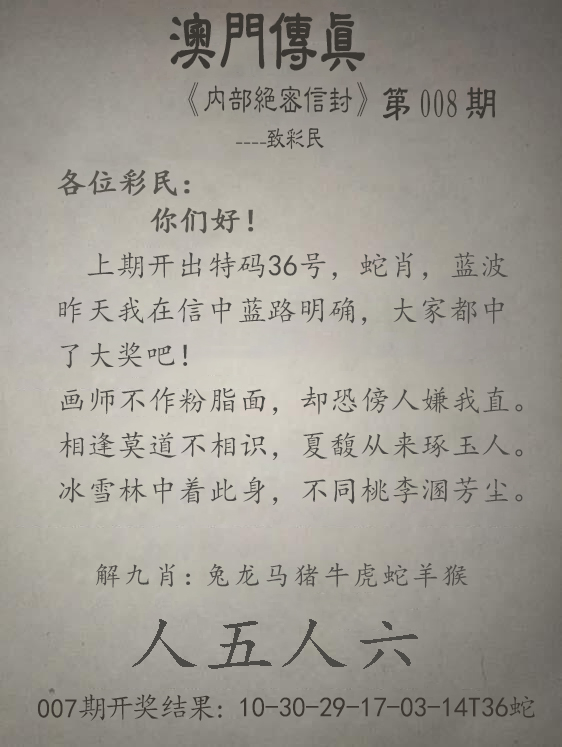 澳門傳眞
《内部絕密信封》第008期
----致彩民
各位彩民：
你们好！
上期开出特码36号，蛇肖，蓝波
昨天我在信中蓝路明确，大家都中
了大奖吧！
画师不作粉脂面，却恐傍人嫌我直。
相逢莫道不相识，夏馥从来琢玉人。
冰雪林中着此身，不同桃李溷芳尘。
解九肖：兔龙马猪牛虎蛇羊猴
人五人六
007期开奖结果：10-30-29-17-03-14T36蛇